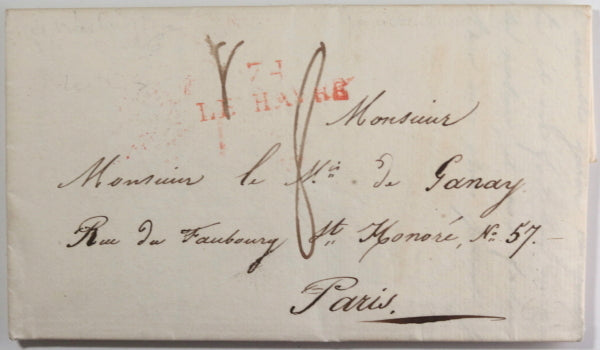 74
LE HAVRE
8
Monsieur
Monsieur le M.is de Ganay
Rue du Faubourg St. Honoré, No. 57.
Paris.